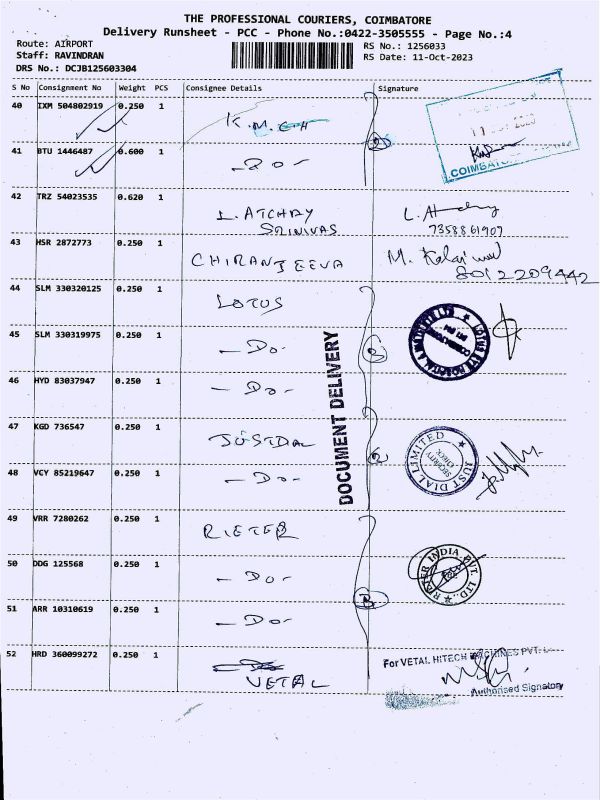 THE PROFESSIONAL COURIERS, COIMBATORE
Delivery Runsheet - PCC - Phone No.:0422-3505555 - Page No.:4
Route: AIRPORT
Staff: RAVINDRAN
DRS No.: DCJB125603304
RS No.: 1256033
RS Date: 11-Oct-2023
S No Consignment No Weight PCS Consignee Details Signature
40 IXM 504802919 0.250 1 K.M.C.H
41 BTU 1446487 0.600 1 -Do-
COIMBATORE
42 TRZ 54023535 0.620 1 L. ATCHAY SRINIVAS
7358861907
43 HSR 2872773 0.250 1 CHIRANJEEVA M.
8012209442
44 SLM 330320125 0.250 1 LOTUS
45 SLM 330319975 0.250 1 -Do-
LOTUS EYE HOSPITAL & INSTITUTE LTD
46 HYD 83037947 0.250 1 -Do-
DOCUMENT DELIVERY
47 KGD 736547 0.250 1 JUSTDIAL
JUST DIAL LIMITED
SECURITY CHECK
48 VCY 85219647 0.250 1 -Do-
49 VRR 7280262 0.250 1 RIETER
50 DDG 125568 0.250 1 -Do-
RIETER INDIA PVT. LTD.
51 ARR 10310619 0.250 1 -Do-
52 HRD 360099272 0.250 1 VETAL
For VETAL HITECH MACHINES PVT. L
Authorised Signatory